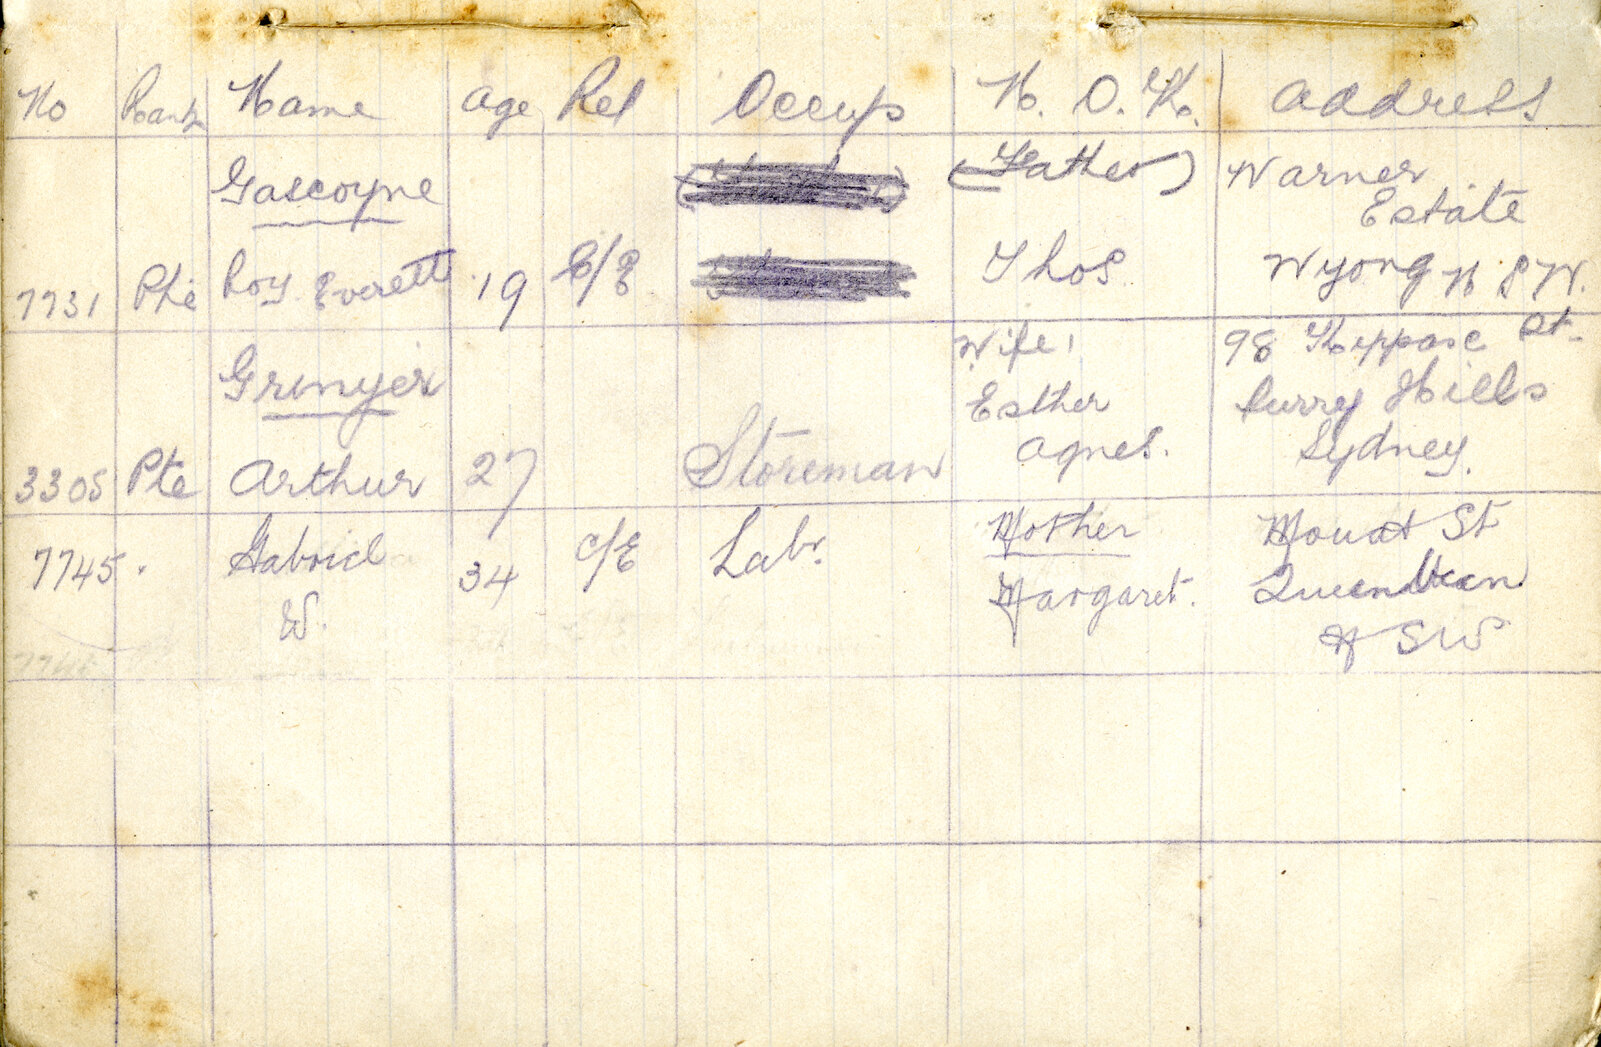 No Rank Name Age Rel Occup N. O. K. Address
Gascoyne (Father) Warner
Estate
7731 Pte Roy Everett 19 C/E Thos Wyong N S W.
Wife, 98 St.
Grinyer Esther Surry Hills
3305 Pte Arthur 27 Storeman Agnes. Sydney.
7745. Gabriel 34 C/E Labr. Mother Mount St
W. Margaret. Queanbean
N S W